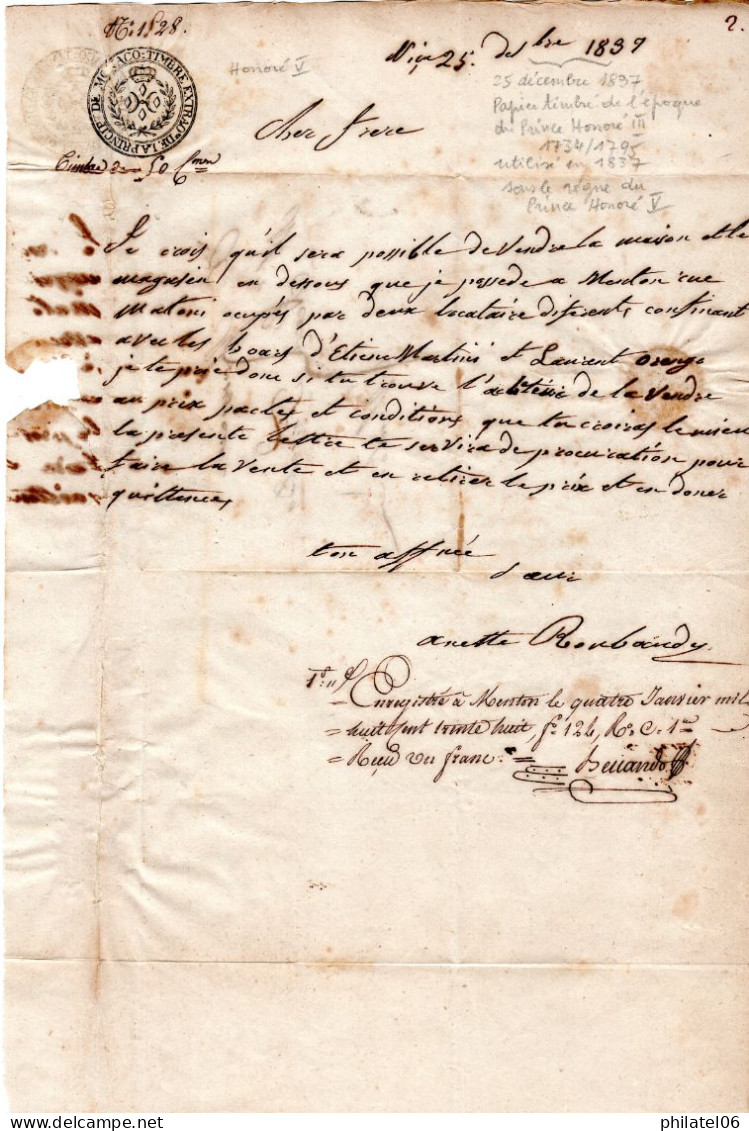 N.º 1528.
2.
PRINCIP.TÉ DE MONACO: TIMBRE EXTRAO.RE DE LA
Honoré V
Nice 25. desbre 1837
25 décembre 1837
Papier timbré de l'époque
du Prince Honoré III
1734/1795
utilisé en 1837
sous le règne du
Prince Honoré V
Cher frere
Timbre de 50 Cmes
Je crois qu'il sera possible de vendre la maison et le
magasin en dessous que je possede a Menton rue
Matoni ocupés par deux locataire diferents confinant
avec les hoirs d'Etiene Martini et Laurent Orengo
je te prie donc si tu trouve l' de la vendre
au prix pactes et conditions que tu croiras le mieu
la presente lettre te servira de procuration pour
faire la vente et en retirer le prix et en doner
quittences
ton affnée
sœur
anette Roubaudy
Enregistré à Menton le quatre Janvier mil
= huit cent trente huit, fº 124, Rº C. 1re
= Reçu un franc. =
philatel06